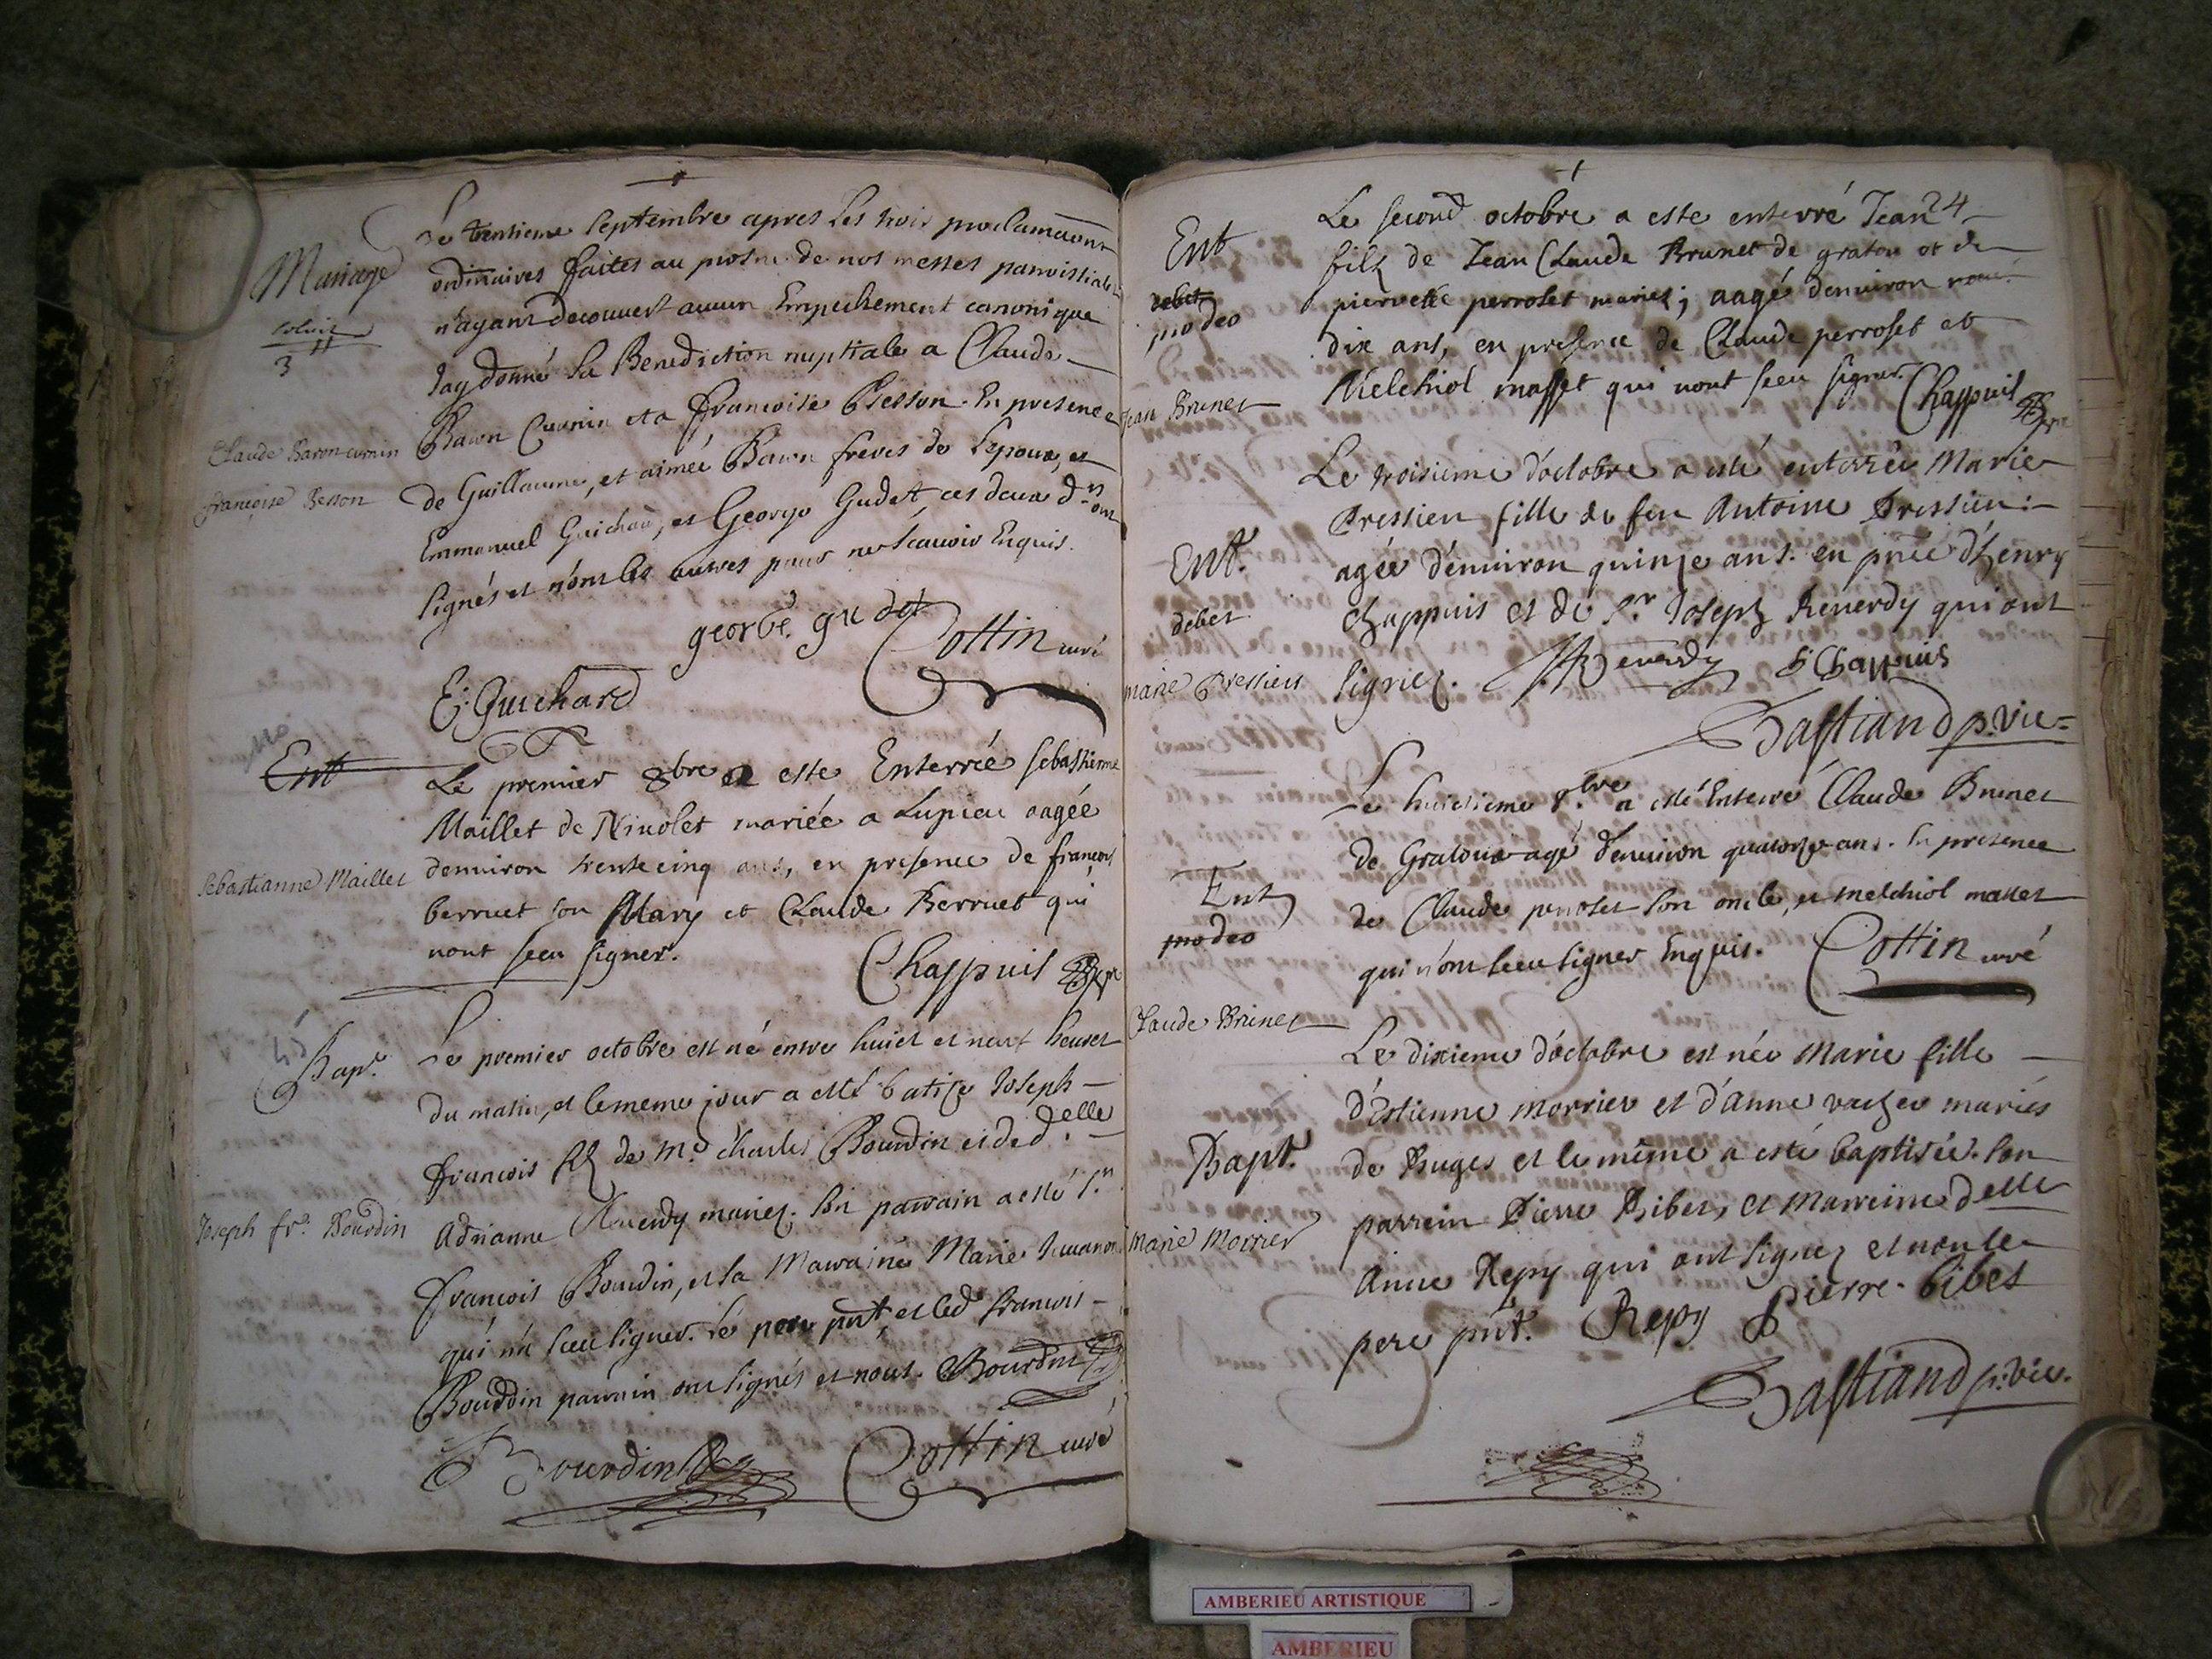 Mariage
solvit
3 ll
Claude Baron cunin
françoise Besson
Le trentieme septembre apres Les trois proclamaõns
ordinaires faites au prosne de nos messes parroissiales
n'ayant decouvert aucun Empechement canonique
Jay donné La Benediction nuptiale a Claude
Baron Cunin et a françoise Besson. En presence
de Guillaume, et aimée Baron freres de L'epoux, et
Emmanuel Guichard, et George Gudet, ces deux d.rs ont
signés et n'ont les autres pour ne scauoir Enquis.
george gu det
Cottin curé
E: Guichard
Ent
Sebastianne Maillet
Le premier 8bre a este Enterrée sebastienne
Maillet de Niuolet mariée a Lupieu aagée
demuiron trente cinq ans, en presence de françois
berruet son Mary et Claude Berruet qui
nont sceu signer.
Chappuis
Bap.t
Joseph fr.s Bourdin
Le premier octobre est né entre huict et neuf heures
du matin, et le meme jour a esté batisé Joseph
françois fils de m.e Charles Bourdin et de d.elle
Adrianne Reuerdy mariez. Son parrain a esté s.r
françois Bourdin, et la Marraine Marie
qui n'a sceu signer. Le pere pñt, et led francois
Bourdin parrain ont signés et nous. Bourdin
Bourdin
Cottin curé
Ent
debet
pro deo
Jean Brunet
24
Le second octobre a este enterré Jean
fils de Jean Claude Brunet de gratou et de
pierrette perroset mariez; aagé demuiron
dix ans, en presence de Claude perroset et
Melchiol masset qui nont sceu signer. Chappuis
Ent.
debet
marie Pressieu
Le troisieme d'octobre a esté enterrée Marie
Pressieu fille de feu Antoine Pressieu
agée d'enuiron quinze ans. en pñce d'henry
Chappuis et de s.r Joseph Reuerdy qui ont
signez. Reuerdy h Chappuis
Bastiand p. vic
Ent
pro deo
Claude Brunet
Le huictieme 8.bre a esté Enterré Claude Brunet
de Gratoux agé d'enuiron quatorze ans. En presence
de Claude perroset son oncle, et melchiol masset
qui n'ont sceu signer Enquis. Cottin curé
Bapt.
Marie Morrier
Le dixieme d'octobre est née Marie fille
d'Estienne morrier et d'anne vacher mariés
de Buges et le même a esté baptisée. son
parrein Pierre Bibet, et marreine d.elle
Anne Repy qui ont signez et non le
pere pñt. Repy Pierre bibet
Bastiand p. vic.
AMBERIEU ARTISTIQUE
AMBERIEU